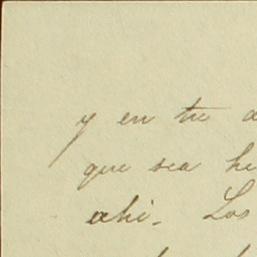 y en tu
que sea
ahi. Los